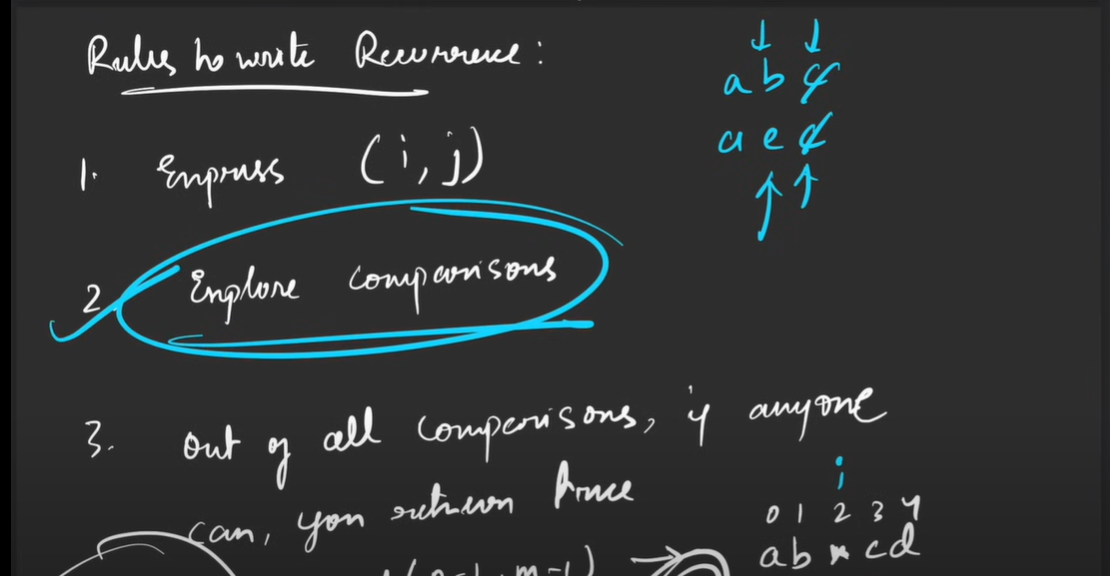 Rules to write Recurrence:
a b c
a e c
1. Express (i, j)
2 Explore comparisons
3. out of all comparisons, if anyone
can, you return true
i
0 1 2 3 4
a b * c d
(n-1, m-1)